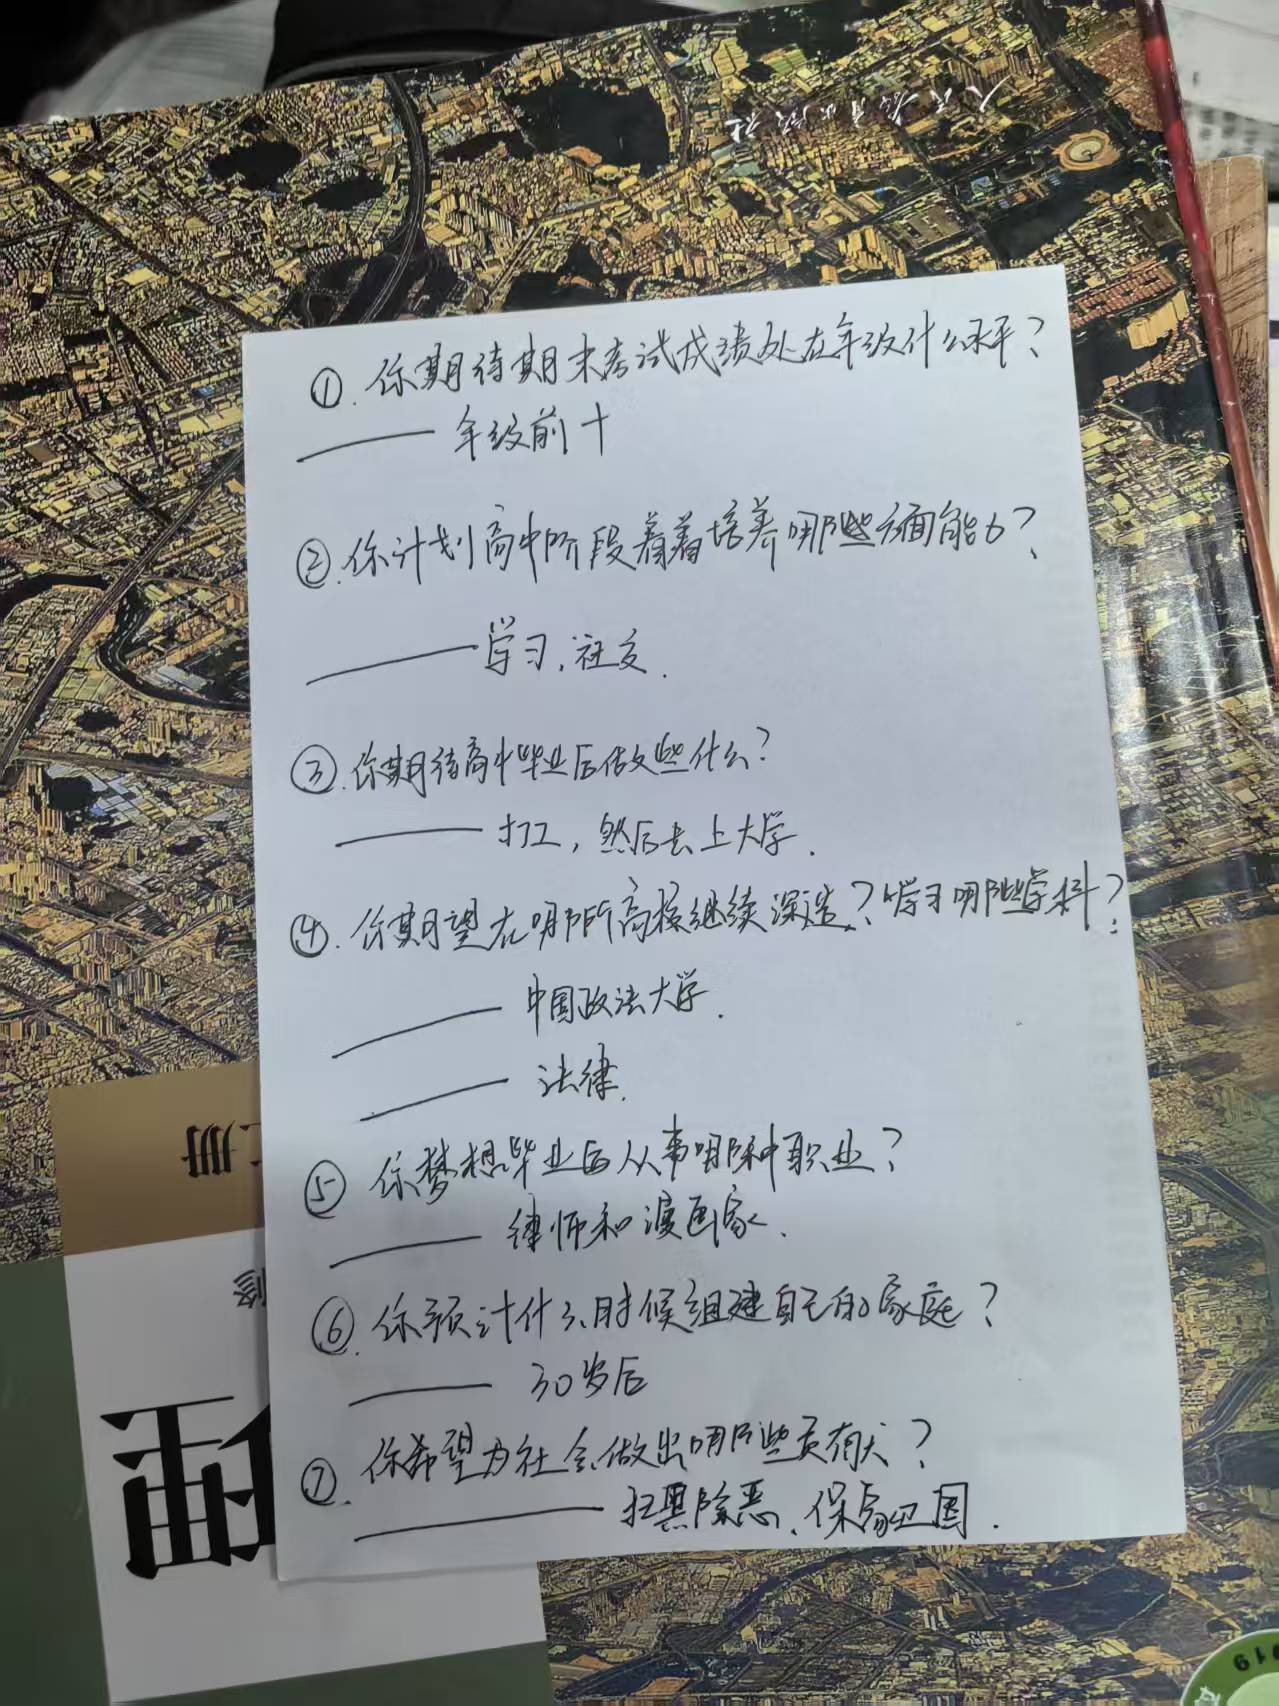 人民教育出版社
①.你期待期末考试成绩处在年级什么水平?
—— 年级前十
②.你计划高中阶段着着培养哪些方面能力?
—— 学习、社交.
③.你期待高中毕业后做些什么?
—— 打工,然后去上大学.
④.你期望在哪所高校继续深造?学习哪些学科?
—— 中国政法大学.
—— 法律.
⑤.你梦想毕业后从事哪种职业?
—— 律师和漫画家.
⑥.你预计什么时候组建自己的家庭?
—— 30岁后
⑦.你希望为社会做出哪些贡献?
—— 扫黑除恶、保家卫国.
册
修
19